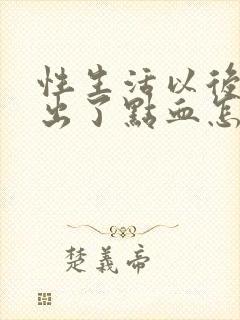 性生活以後
出了點血怎
楚義帝